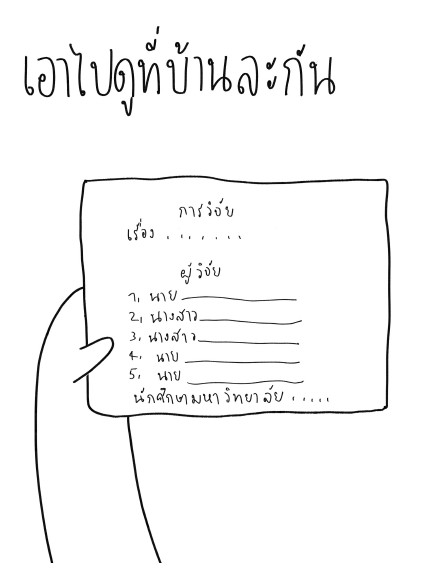 เอาไปดูที่บ้านละกัน
การวิจัย
เรื่อง .......
ผู้วิจัย
1. นาย
2. นางสาว
3. นางสาว
4. นาย
5. นาย
นักศึกษามหาวิทยาลัย .....